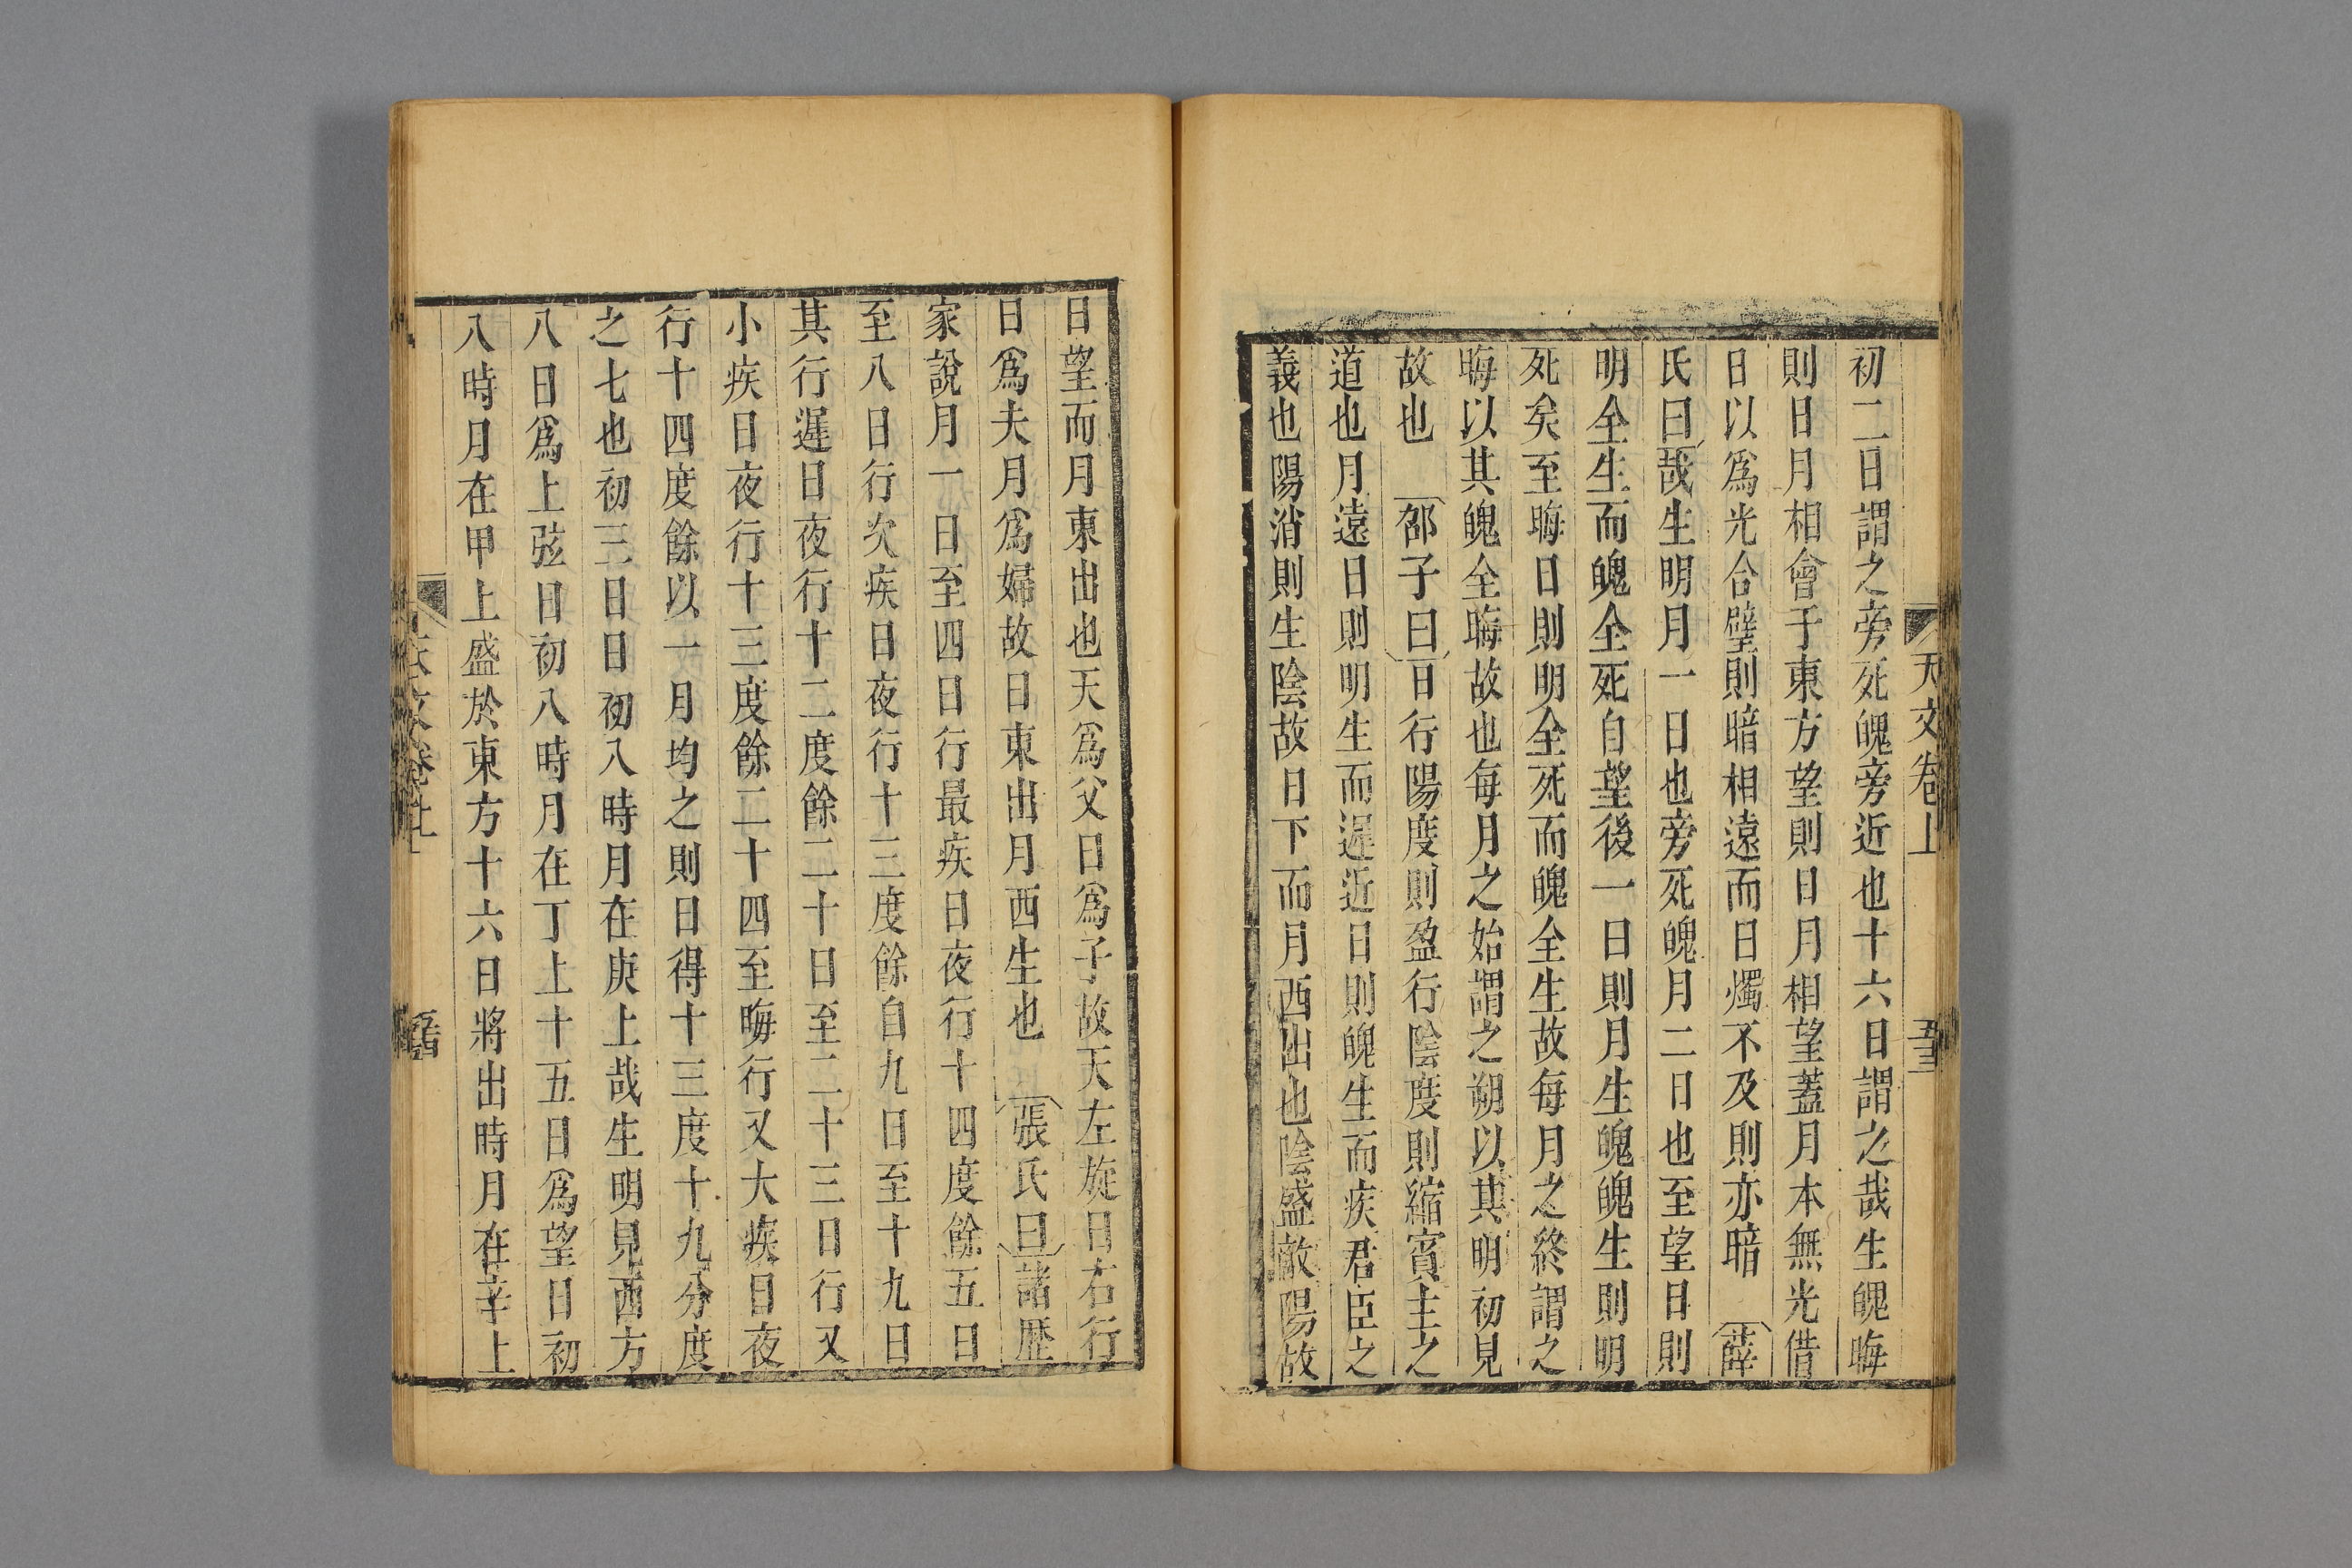 天文卷上
初二日謂之旁死魄旁近也十六日謂之哉生魄晦
則日月相會于東方望則日月相望蓋月本無光借
日以爲光合璧則暗相遠而日燭不及則亦暗 薛
氏曰哉生明月一日也旁死魄月二日也至望日則
明全生而魄全死自望後一日則月生魄魄生則明
死矣至晦日則明全死而魄全生故每月之終謂之
晦以其魄全晦故也每月之始謂之朔以其明初見
故也 邵子曰日行陽度則盈行陰度則縮賓主之
道也月遠日則明生而遲近日則魄生而疾君臣之
義也陽消則生陰故日下而月西出也陰盛敵陽故
日望而月東出也天爲父日爲子故天左旋日右行
日爲夫月爲婦故日東出月西生也 張氏曰諸歷
家說月一日至四日行最疾日夜行十四度餘五日
至八日行次疾日夜行十三度餘自九日至十九日
其行遲日夜行十二度餘二十日至二十三日行又
小疾日夜行十三度餘二十四至晦行又大疾日夜
行十四度餘以一月均之則日得十三度十九分度
之七也初三日日初入時月在庚上哉生明見西方
八日爲上弦日初入時月在丁上十五日爲望日初
入時月在甲上盛於東方十六日將出時月在辛上